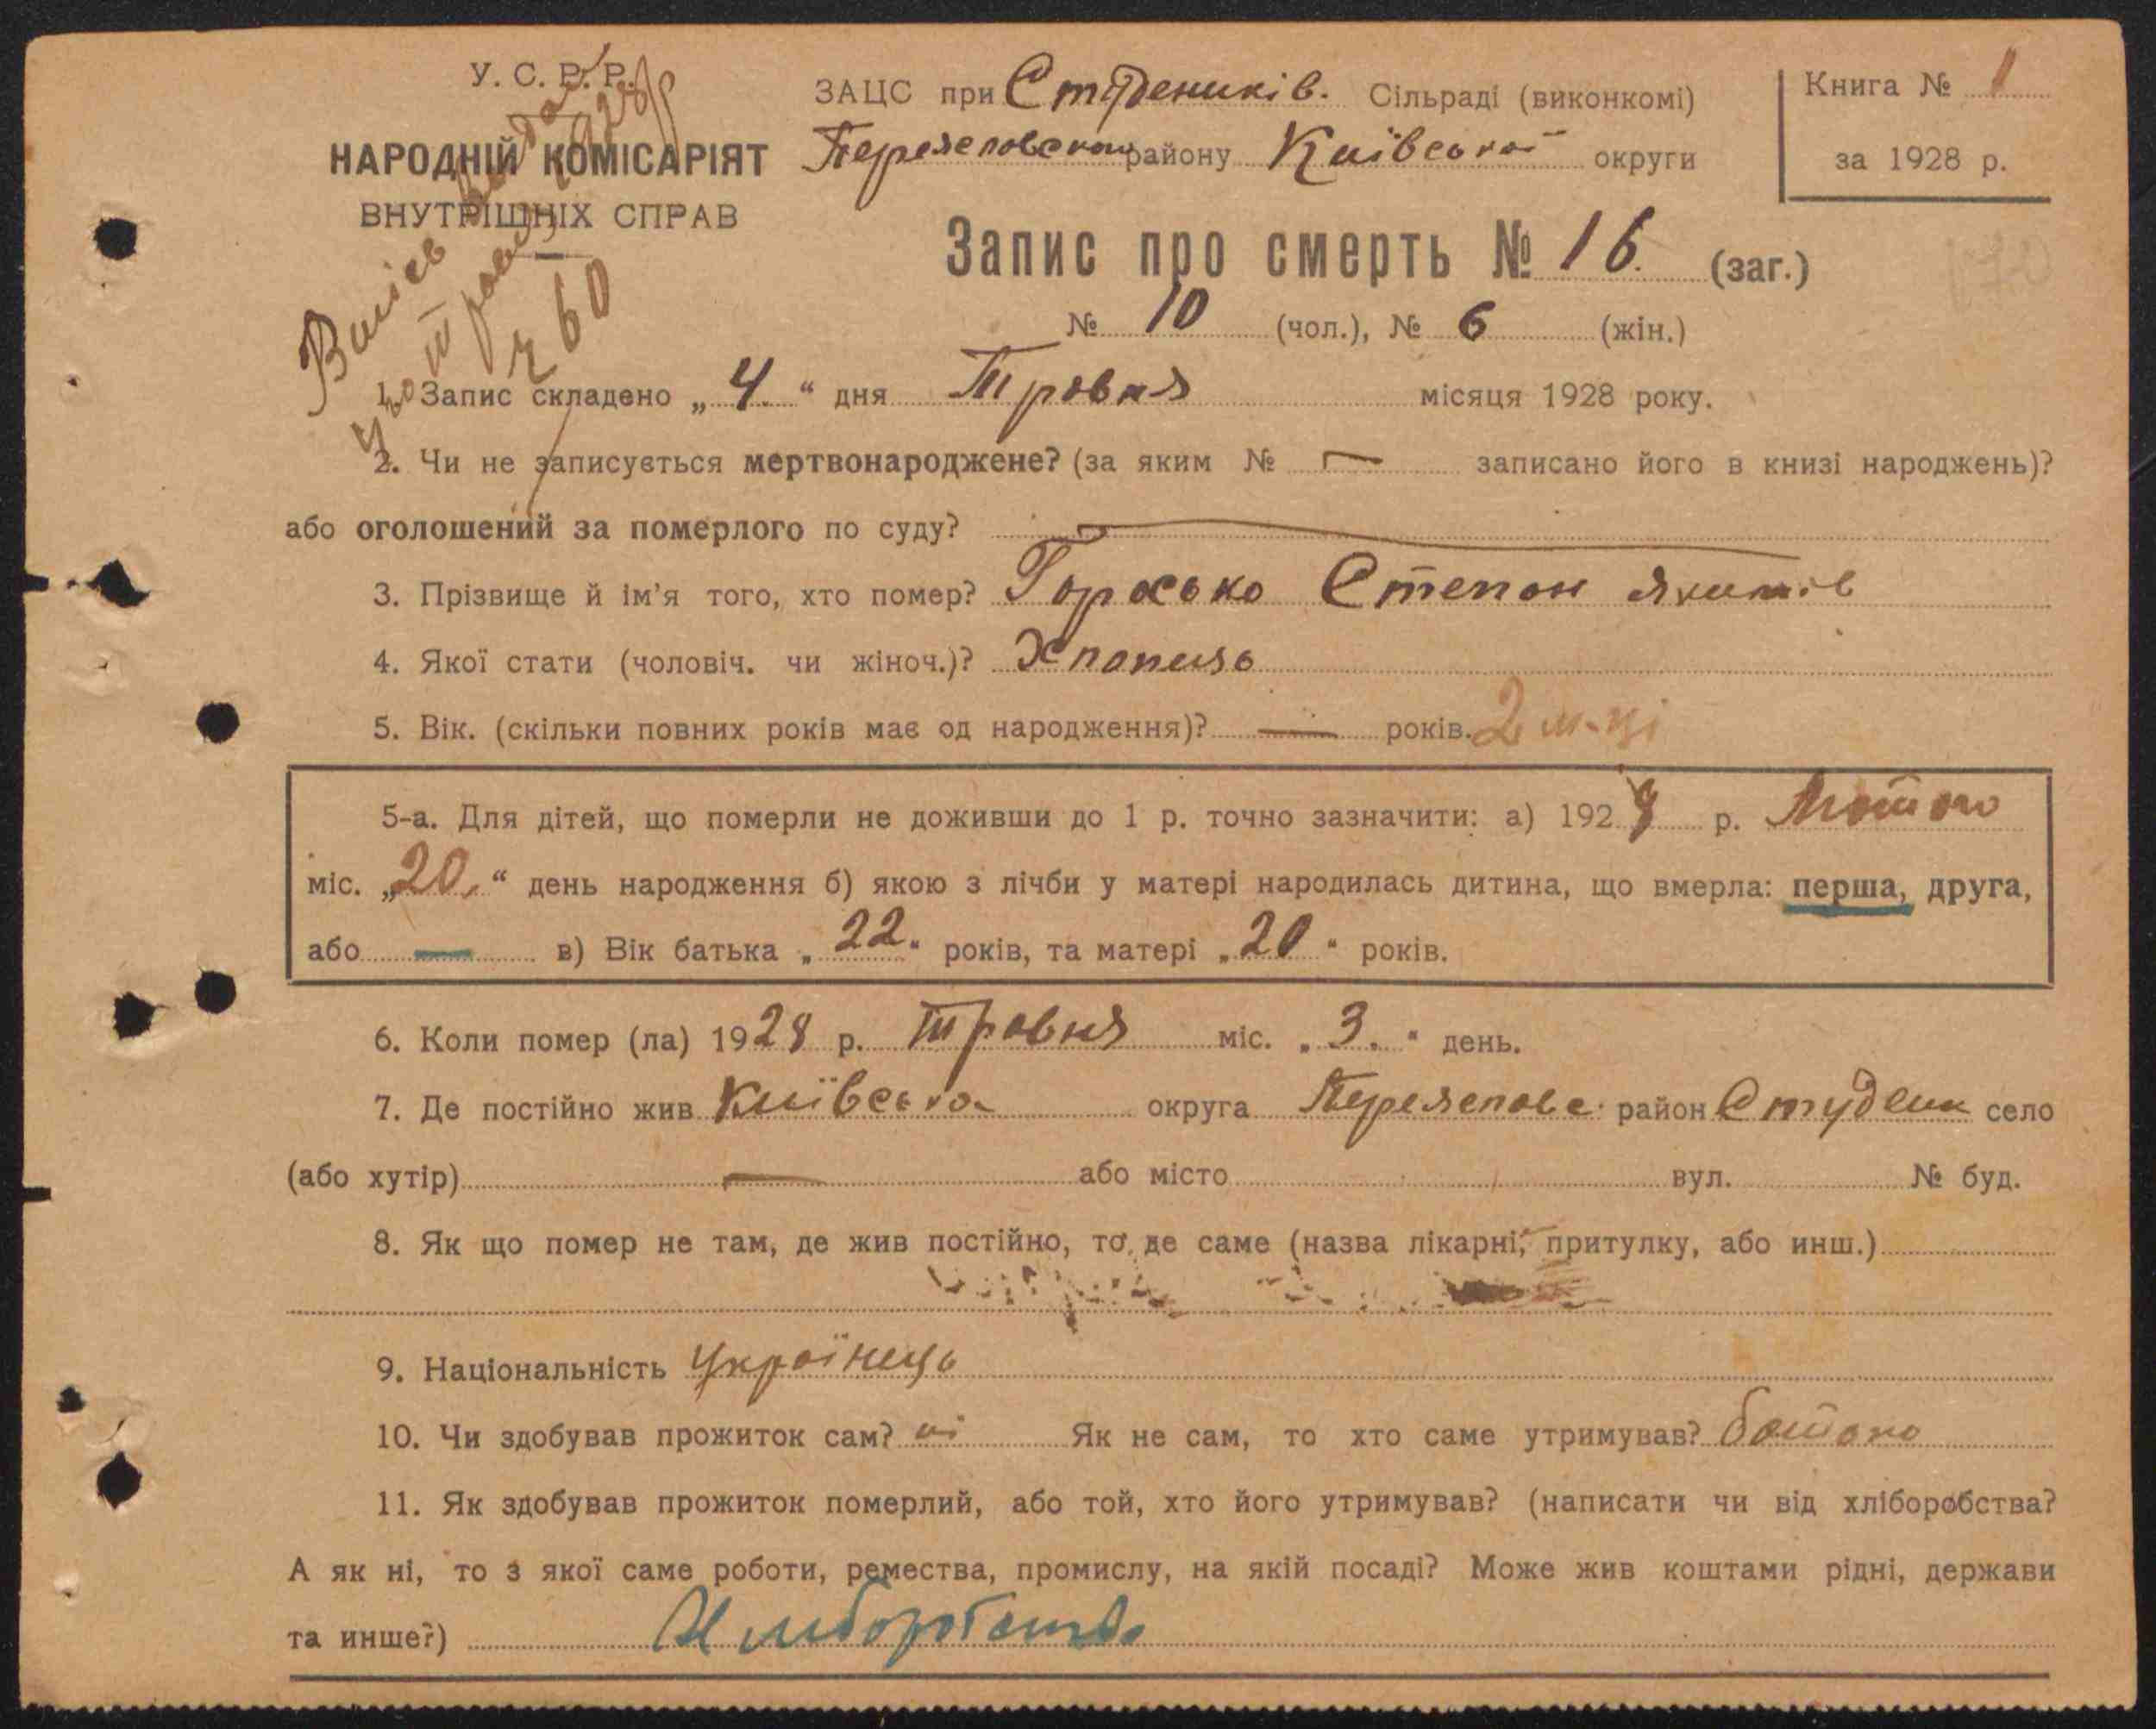 У. С. Р. Р.
НАРОДНІЙ КОМІСАРІЯТ
ВНУТРІШНІХ СПРАВ
ЗАЦС при Студеників. Сільраді (виконкомі)
району Київської округи
Книга № 1
за 1928 р.
Запис про смерть № 16. (заг.)
№ 10 (чол.), № 6 (жін.)
Випись
№ 60
1. Запис складено „4.“ дня Травня місяця 1928 року.
2. Чи не записується мертвонароджене? (за яким № — записано його в книзі народжень)?
або оголошений за померлого по суду? —
3. Прізвище й ім'я того, хто помер? Степан Якимів
4. Якої стати (чоловіч. чи жіноч.)? Хлопець
5. Вік. (скільки повних років має од народження)? — років. 2 м-ці
5-а. Для дітей, що померли не доживши до 1 р. точно зазначити: а) 1928 р. Лютого
міс. „20.“ день народження б) якою з лічби у матері народилась дитина, що вмерла: перша, друга,
або — в) Вік батька „22.“ років, та матері „20“ років.
6. Коли помер (ла) 1928 р. Травня міс. „3.“ день.
7. Де постійно жив Київська округа Переяславс. район Студеник село
(або хутір) — або місто вул. № буд.
8. Як що помер не там, де жив постійно, то де саме (назва лікарні, притулку, або инш.)
9. Національність Українець
10. Чи здобував прожиток сам? ні Як не сам, то хто саме утримував? батько
11. Як здобував прожиток померлий, або той, хто його утримував? (написати чи від хліборобства?
А як ні, то з якої саме роботи, ремества, промислу, на якій посаді? Може жив коштами рідні, держави
та инше?) Хліборобство